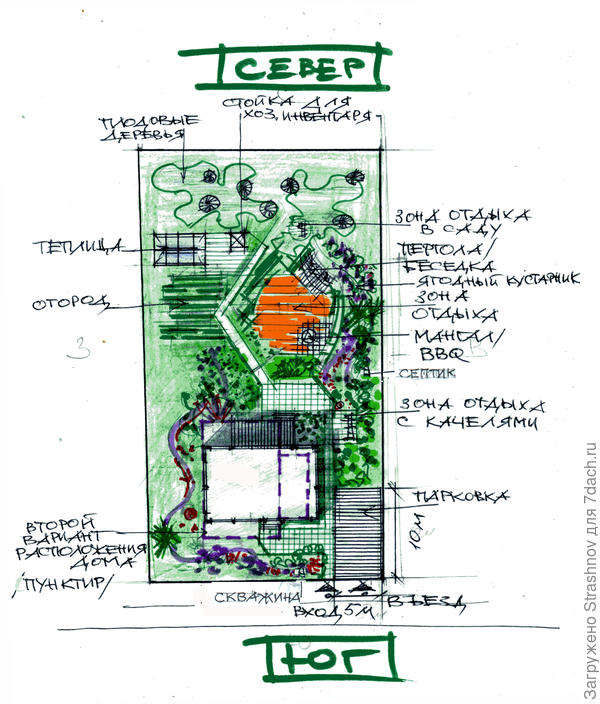 СЕВЕР
СТОЙКА ДЛЯ
ХОЗ. ИНВЕНТАРЯ
ПЛОДОВЫЕ
ДЕРЕВЬЯ
ТЕПЛИЦА
ОГОРОД
З
ЗОНА ОТДЫХА
В САДУ
ПЕРГОЛА/
БЕСЕДКА
ЯГОДНЫЙ КУСТАРНИК
ЗОНА
ОТДЫХА
МАНГАЛ/
BBQ
В
СЕПТИК
ЗОНА ОТДЫХА
С КАЧЕЛЯМИ
ПАРКОВКА
10М
ВТОРОЙ
ВАРИАНТ
РАСПОЛОЖЕНИЯ
ДОМА
/ПУНКТИР/
СКВАЖИНА
ВХОД 5М
ВЪЕЗД
ЮГ
Загружено Strashnov для 7dach.ru